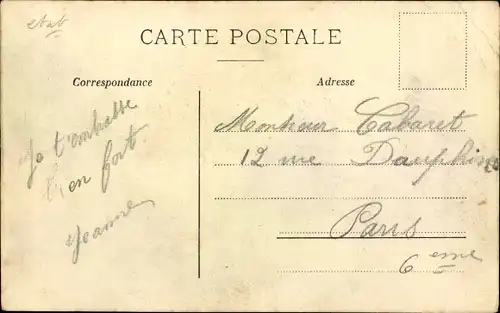 CARTE POSTALE
Correspondance
Adresse
Je t'embrasse
bien fort.
Jeanne
Monsieur Cabaret
12 rue Dauphine
Paris
6 eme